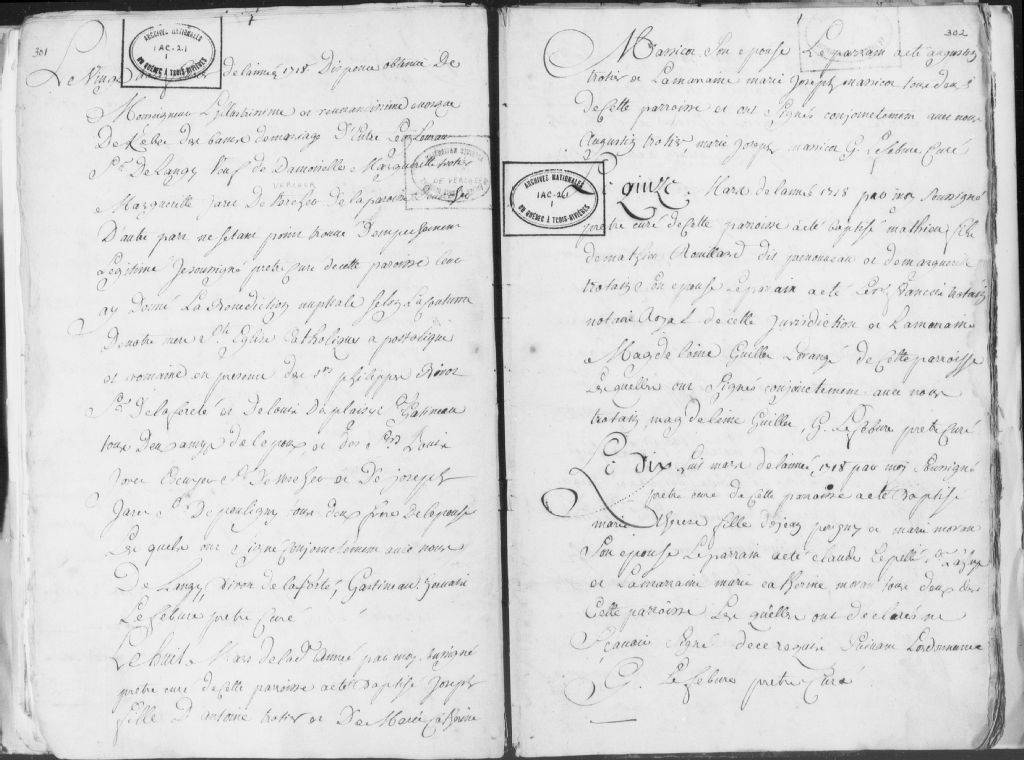 301
ARCHIVES NATIONALES
(AC-2)
1
DU QUÉBEC À TROIS-RIVIÈRES
Le Vingt de lannée 1718 Dispence obtenue De
Monseigneur L'illustrissime et reverendissime evesque
De Kébec des bans demariage D'entre
Sr. De Langy Veuf de Damoiselle Marguerite trotier
Marguerite Jaret De Vercher de la paroisse
VERCHER
D'autre part ne setant point trouvé Dempeschement
Legitime Je soussigné prêtre Curé de cette paroisse leur
ay Donné La Benediction nuptiale selon La Coutume
De notre mere Ste Eglise Catholique apostolique
et romaine en presence des srs philippe
Sr. De la ferté et De Louis Duplaisy Gatineau
tous Deux amys de lepoux, et des Srs Louis
Jaret Ecuyer Sr. De Vercher et De joseph
Jaret Sr. De pouligny tous deux frere De lepouse
Lesquels ont Signé Conjointement avec nous
De Langy, de la ferté, Gastineau,
Le febure pretre Curé
Le huit Mars de lad. année par moy soussigné
pretre curé de Cette paroisse a eté Baptisé Joseph
fille D'antoine trotier et De Marie Catherine
302
Massicot Son epouse Le parrain a eté augustin
trotier et La maraine marie Joseph massicot tous deux
de Cette parroisse et ont Signés conjointement avec nous
Augustin trotier, marie Joseph masicot G. Lefebure Curé
ARCHIVES NATIONALES
(AC-2)
1
DU QUÉBEC À TROIS-RIVIÈRES
Le quinze Mars de lannée 1718 par moi Soussigné
pretre curé de cette paroisse a eté baptisé mathieu fils
de mathieu Rouillard dit et de marguerite
trotain Son epouse Le parain a eté Le sr. francois trotain
notaire Royal de cette Jurisdiction et La maraine
Magdeleine Guillet de Cette parroisse
Lesquelles ont Signés conjointement avec nous
trotain magdeleine Guillet, G. Le febure pretre Curé
Le Dix huit mars de lannée, 1718 par moy Soussigné
pretre curé de Cette paroisse a eté Baptisé
marie therese fille De jean et marie moran
Son epouse Le parrain a eté claude
et La marraine marie catherine moran tous deux de
Cette parroisse Lesquelles ont declarés ne
Scavoir Signé de ce requis Suivant Lordonnance
G. Le febure pretre Curé